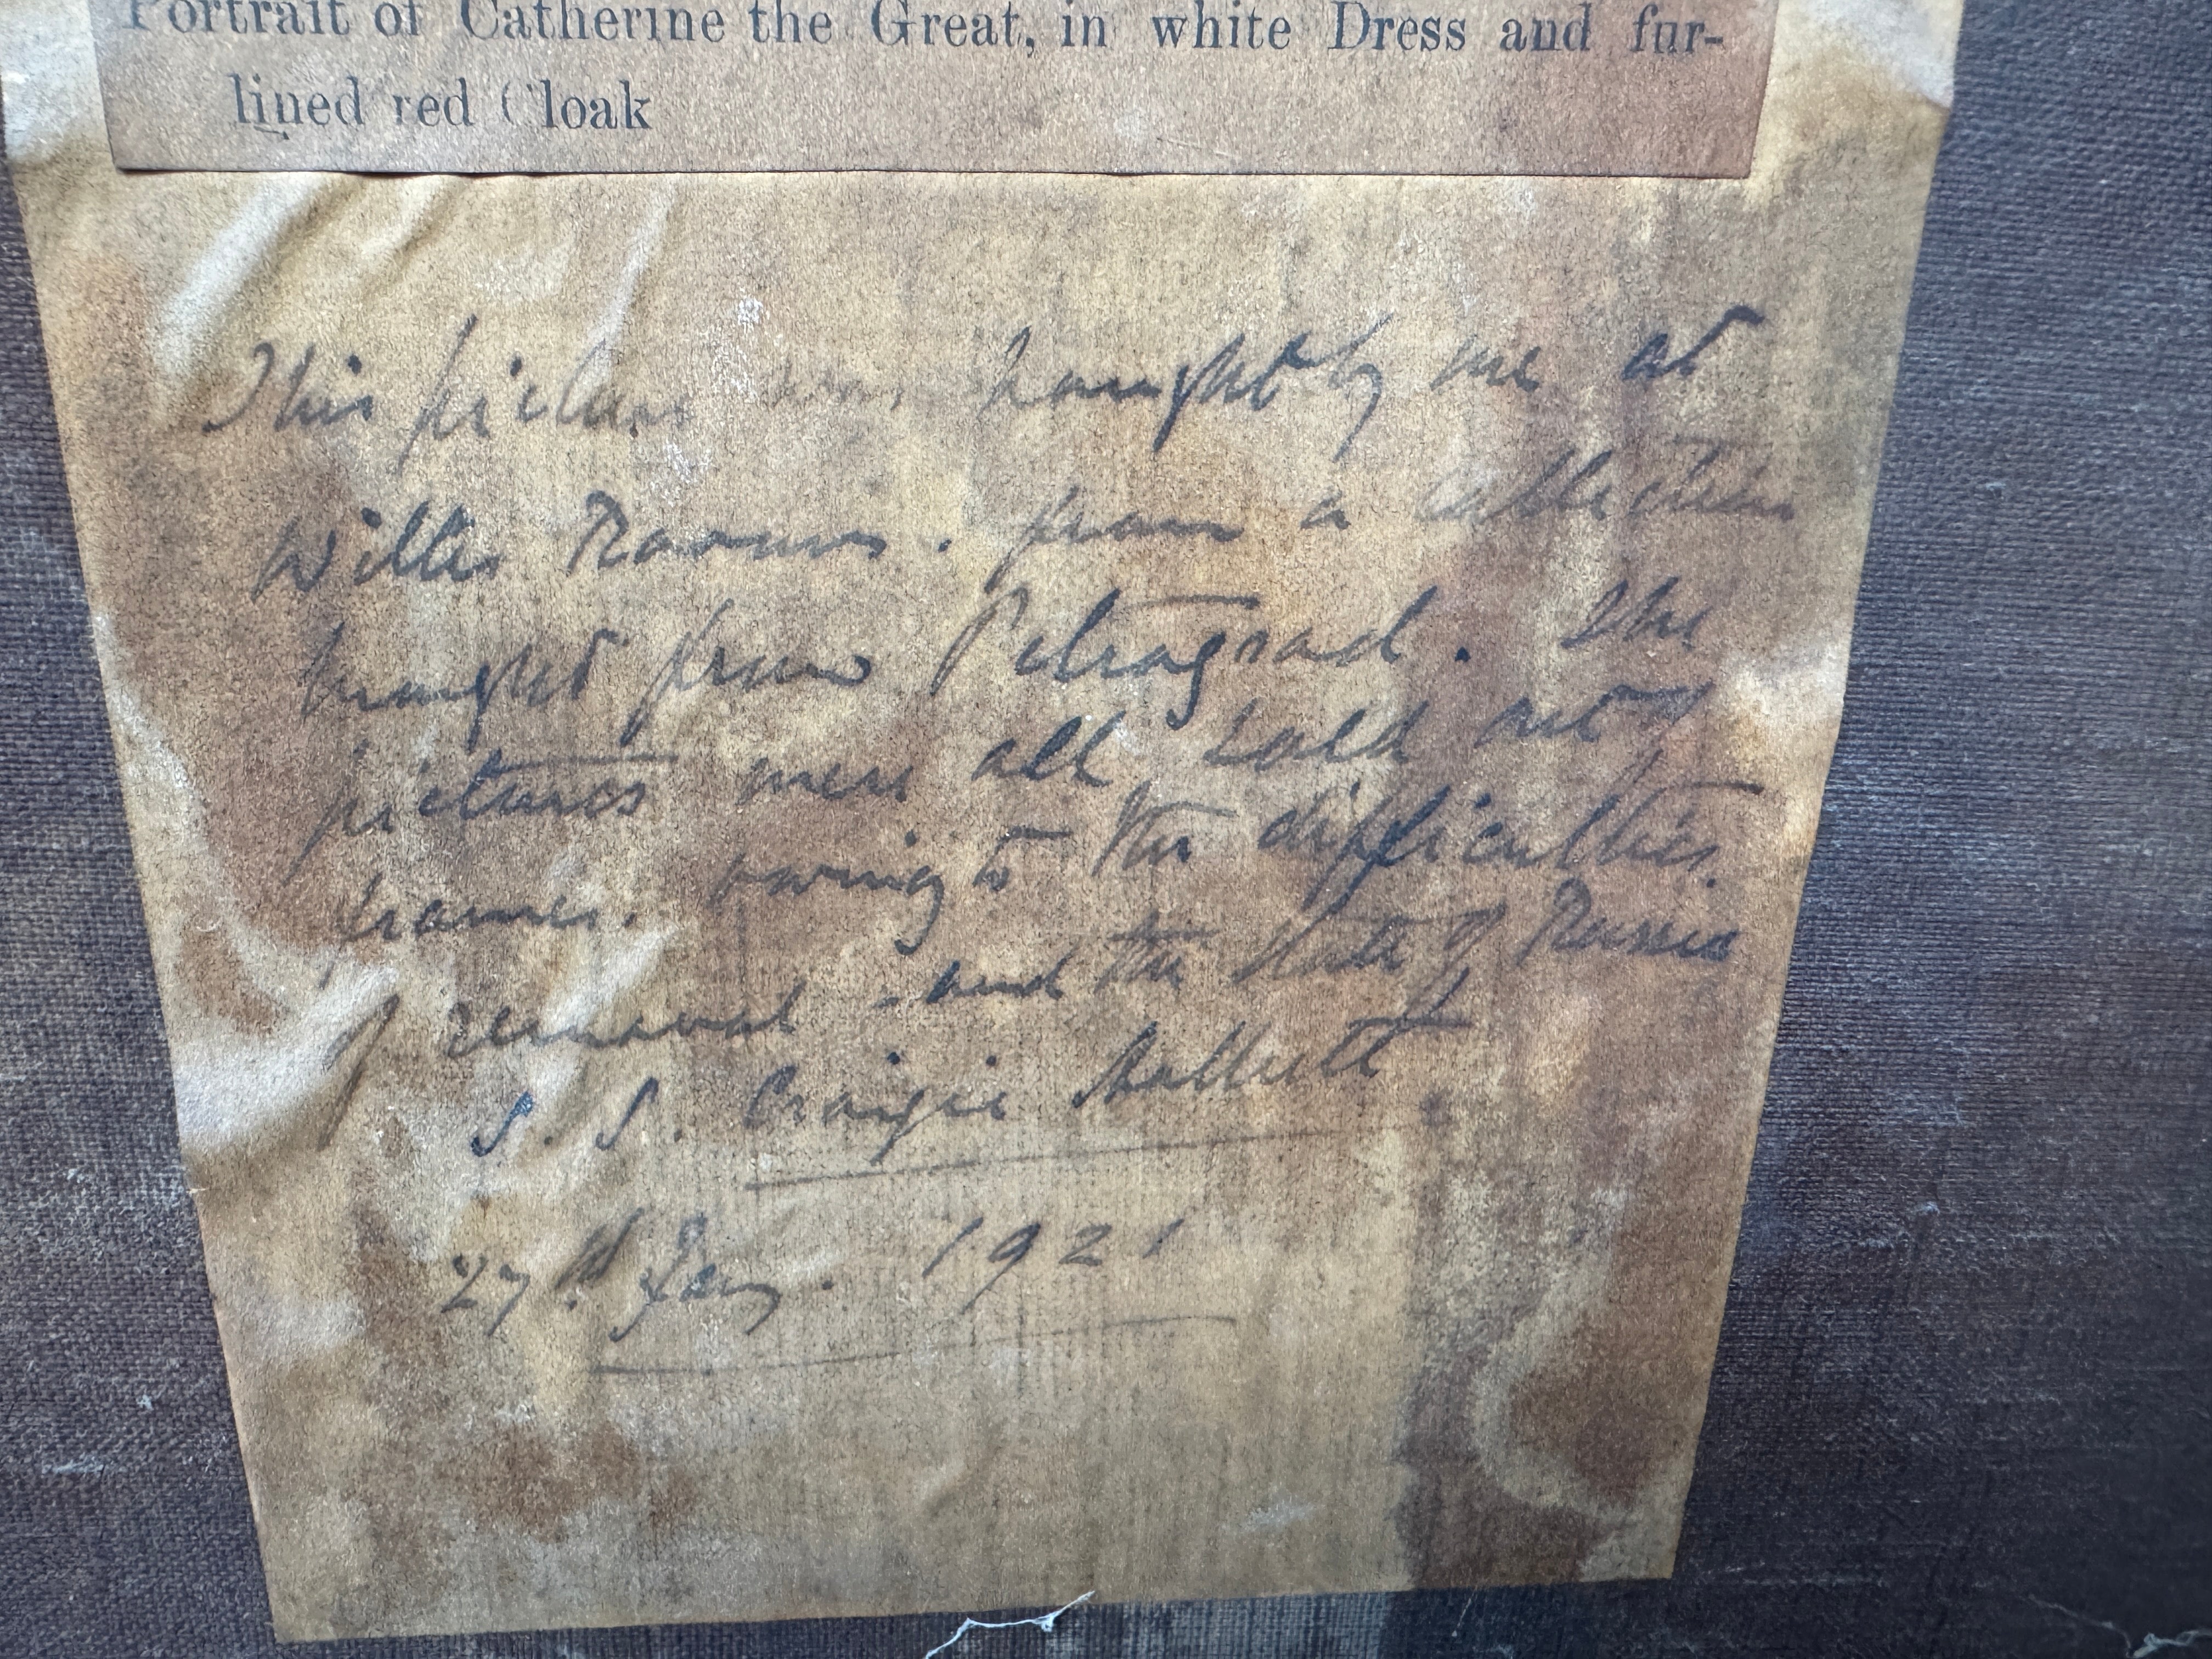 Portrait of Catherine the Great, in white Dress and fur-
lined red Cloak
This picture was bought by me at
Willis Rooms. from a collection
brought from Petrograd. The
pictures were all sold out of
frames. owing to the difficulties
of removal and the state of Russia
S. S. Craigie Halkett
27th Jany. 1921